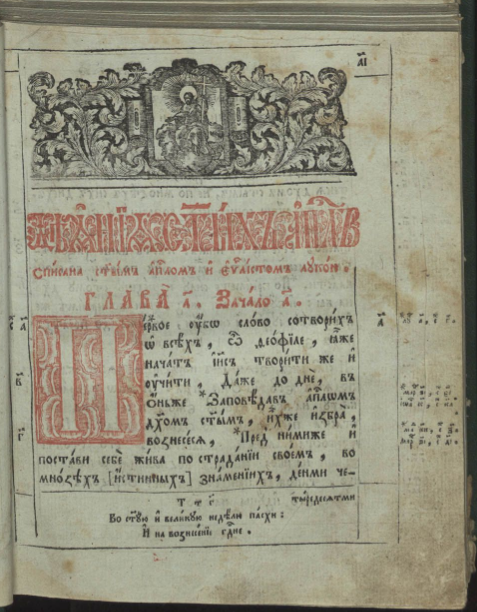 а҃і
Дѣѧ̑нїѧ ст҃ы́хъ а҆пⷭ҇лъ
Списана ст҃ы́мъ а҆пⷭ҇ломъ и҆ є҆ѵⷢ҇лїстомъ лꙋко́ю.
ГЛАВА̀ а҃. Зача́ло а҃.
Пе́рвое ᲂу҆́бѡ сло́во сотвори́хъ
ѡ҆ всѣ́хъ, ѽ ѳео́фїле, ꙗ҆̀же
нача́тъ і҆и҃съ твори́ти же и҆
ᲂу҆чи́ти, Да́же до днѐ, въ
ѻ҆́ньже *Заповѣ́давъ а҆пⷭ҇лѡмъ
дх҃омъ ст҃ы́мъ, и҆̀хже и҆збра̀,
вознесе́сѧ, *Пред ни́миже и҆
поста́ви себѐ жи́ва по страда́нїи свое́мъ, во
мно́зѣхъ [и҆́стинныхъ] зна́менїихъ, де́нми че-
тыредесятми
Во ст҃ꙋ́ю и҆ вели́кꙋю недѣ́лю па́схи:
И҆ на вознесе́нїе гдⷭ҇не.